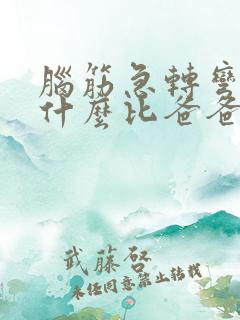 腦筋急轉彎
什麼比爸爸
武藤啓
未經同意禁止轉載